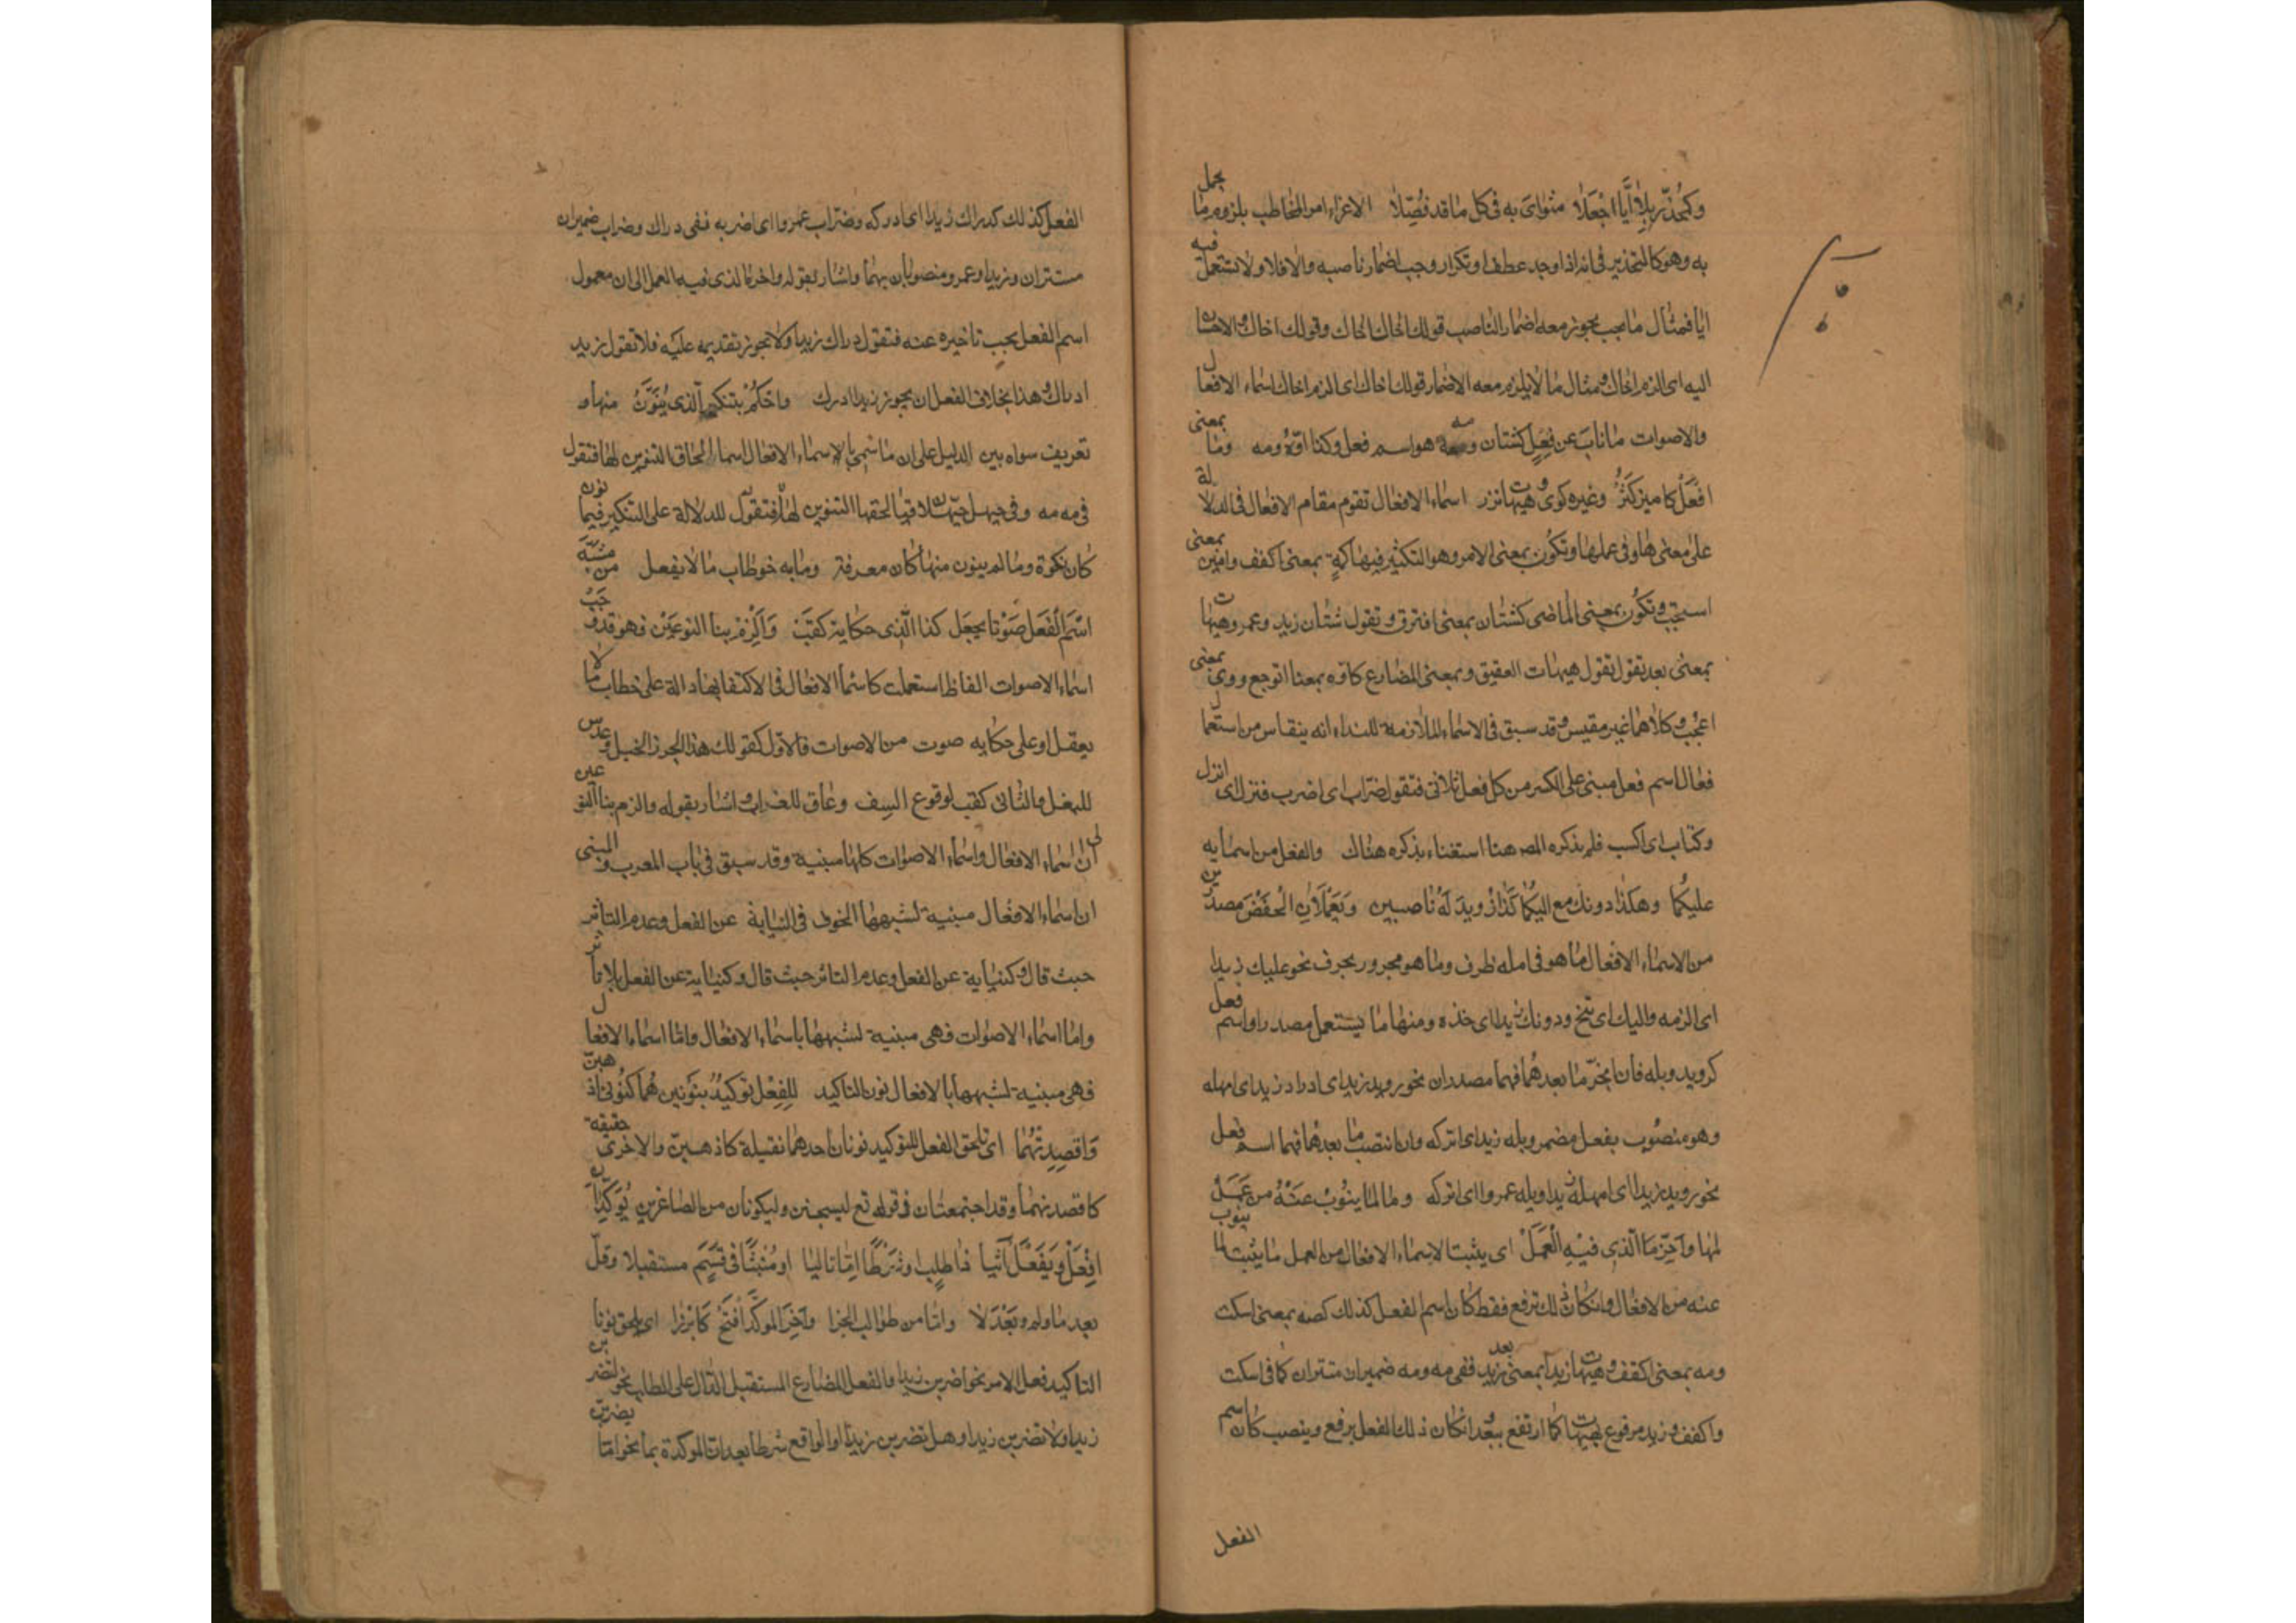 وكمُحذّر بلا ايّا اجعَلا مغرًى به فى كل ما قد فُصّلا الاغراء امر المخاطب بلزوم ما يحمل
به وهو كالتحذير فى انه اذا وجد عطف او تكرار وجب اضمار ناصبه والا فلا ولا تستعمل فيه
ايا فمثال ما يجب يجوز معه اضمار الناصب قولك اخاك اخاك وقولك اخاك والاحسان
اليه اى الزم اخاك ومثال ما لا يلزم معه الاضمار قولك اخاك اى الزم اخاك اسماء الافعال
والاصوات ما ناب عن فِعلٍ كشتان وصه هو اسم فعل وكذا اوّه ومه وما بمعنى
افعَل كامين كَثُرَ وغيره كوى وهيهات نزر اسماء الافعال تقوم مقام الافعال فى الدلالة
على معنى ها وفى عملها وتكون بمعنى الامر وهو الكثير فيها كمه بمعنى اكفف وامين بمعنى
استجب وتكون بمعنى الماضى كشتان بمعنى افترق وتقول شتان زيد وعمرو وهيهات
بمعنى بعد تقول تقول هيهات العقيق وبمعنى المضارع كاوه بمعنا اتوجع ووى بمعنى
اعجب وكلاهما غير مقيس وقد سبق فى الاسماء الملازمة للنداء انه ينقاس من استعمال
فعال اسم فعل مبنى على الكسر من كل فعل ثلاثى فتقول ضراب اى اضرب فنزال اى انزل
وكتاب اى اكتب فلم يذكره المص هنا استغناء بذكره هناك والفعل من اسمايه
عليكما وهكذا دونك مع اليكما كذا رويدَ بَلهَ ناصبين ويَعملان الخفضَ مصدرين
من الاسماء الافعال ما هو فى اصله ظرف وما هو مجرور بحرف نحو عليك زيدا
اى الزمه واليك اى تنح ودونك زيدا اى خذه ومنها ما يستعمل مصدرا واسم فعل
كرويد وبله فان انجرّ ما بعدهما فهما مصدران نحو رويد زيد اى ارواد زيد اى امهله
وهو منصوب بفعل مضمر وبله زيد اى اتركه وان انتصب ما بعدهما فهما اسم فعل
نحو رويد زيدا اى امهل زيدا وبله عمروا اى اتركه وما لما ينوبُ عنهُ من عَمَل
لها وآخِّر ما الّذى فيه العَمَل اى يثبت لاسماء الافعال من العمل ما يثبت لما ينوب
عنه من الافعال وان كان ذلك ترفع فقط كان اسم الفعل كذلك كصه بمعنى اسكت
ومه بمعنى اكفف وهيهات زيدا بمعنى بعد زيد ففى مه ومه ضميران مستتران كما فى اسكت
واكفف وزيد مرفوع بهيهات كما ارتفع ببعد وانكان ذلك الفعل يرفع وينصب كان اسم
الفعل
الفعل كذلك كدراك زيدا اى ادركه وضراب عمروا اى اضربه ففى دراك وضراب ضميران
مستتران وزيدا وعمرو منصوبان بهما واشار بقوله واخر ما الذى فيه العمل الى ان معمول
اسم الفعل يجب تاخيره عنه فتقول دراك زيدا ولا يجوز تقديمه عليه فلا تقول زيد
ادراك وهذا بخلاف الفعل ان يجوز زيدا ادرك واحكُم بتنكير الّذى يُنوَّنُ منها و
تعريف سواه بين الدليل على ان ما سمى بالاسماء الافعال اسما الحاق التنوين لها فتقول
فى مه مه وفى حيهل حيهلا فيما لحقها التنوين لها فتقول للدلالة على التنكير فيما نون
كان نكرة وما لم ينون منها كان معرفة وما به خوطاب ما لا يفعل من مشبه
اسم الفعل صَوتا يجعل كذا الّذى حكاية كقبْ والزم بنا النوعين فهو قد وجب
اسماء الاصوات الفاظ استعملت كاسما الافعال فى الاكتفا بها دالة على خطاب ما لا
يعقل او على حكايه صوت من الاصوات فالاول كقولك هذا لزجر الخيل وعدس
للبغل والثانى كقب لوقوع السيف وغاق للغراب واشار بقوله والزم بنا النوعين
الى ان اسماء الافعال واسماء الاصوات كلها مبنية وقد سبق فى باب المعرب والمبنى
ان اسماء الافعال مبنية لشبهها الحروف فى النيابة عن الفعل وعدم التاثر
حيث قال وكنيابة عن الفعل وعدم التاثر حيث قال وكنيابة عن الفعل بلا تأثر
واما اسماء الاصوات فهى مبنية لشبهها باسماء الافعال واما اسماء الافعال
فهى مبنية لشبهها بالافعال نون التاكيد للفِعل توكيدٌ بنونين هُما كنونى اذهبنّ
واقصِدنهُما اى تلحق الفعل للتوكيد نونان احدهما ثقيلة كاذهبنّ والاخرى خفيفة
كاقصدنهما وقد اجتمعتان فى قوله تع ليسجنن وليكونان من الصاغرين يُوَكّدان
افعَل ويَفعَل آتيا ذا طلبٍ او شَرطًا امّا تاليا او مُثبتًا فى قسم مستقبلا وقلّ
بعد ما ولم وبَعد لا واما من طوالب الجزا وآخِرَ الموكّد افتح كابرزا اى يلحق نونا
التاكيد فعل الامر نحو اضربن زيدا والفعل المضارع المستقبل الدال على الطلب نحو لتضربن
زيدا ولا تضربن زيدا وهل تضربن زيدا او الواقع شرطا بعد ان الموكدة بما نحو اما يضربن